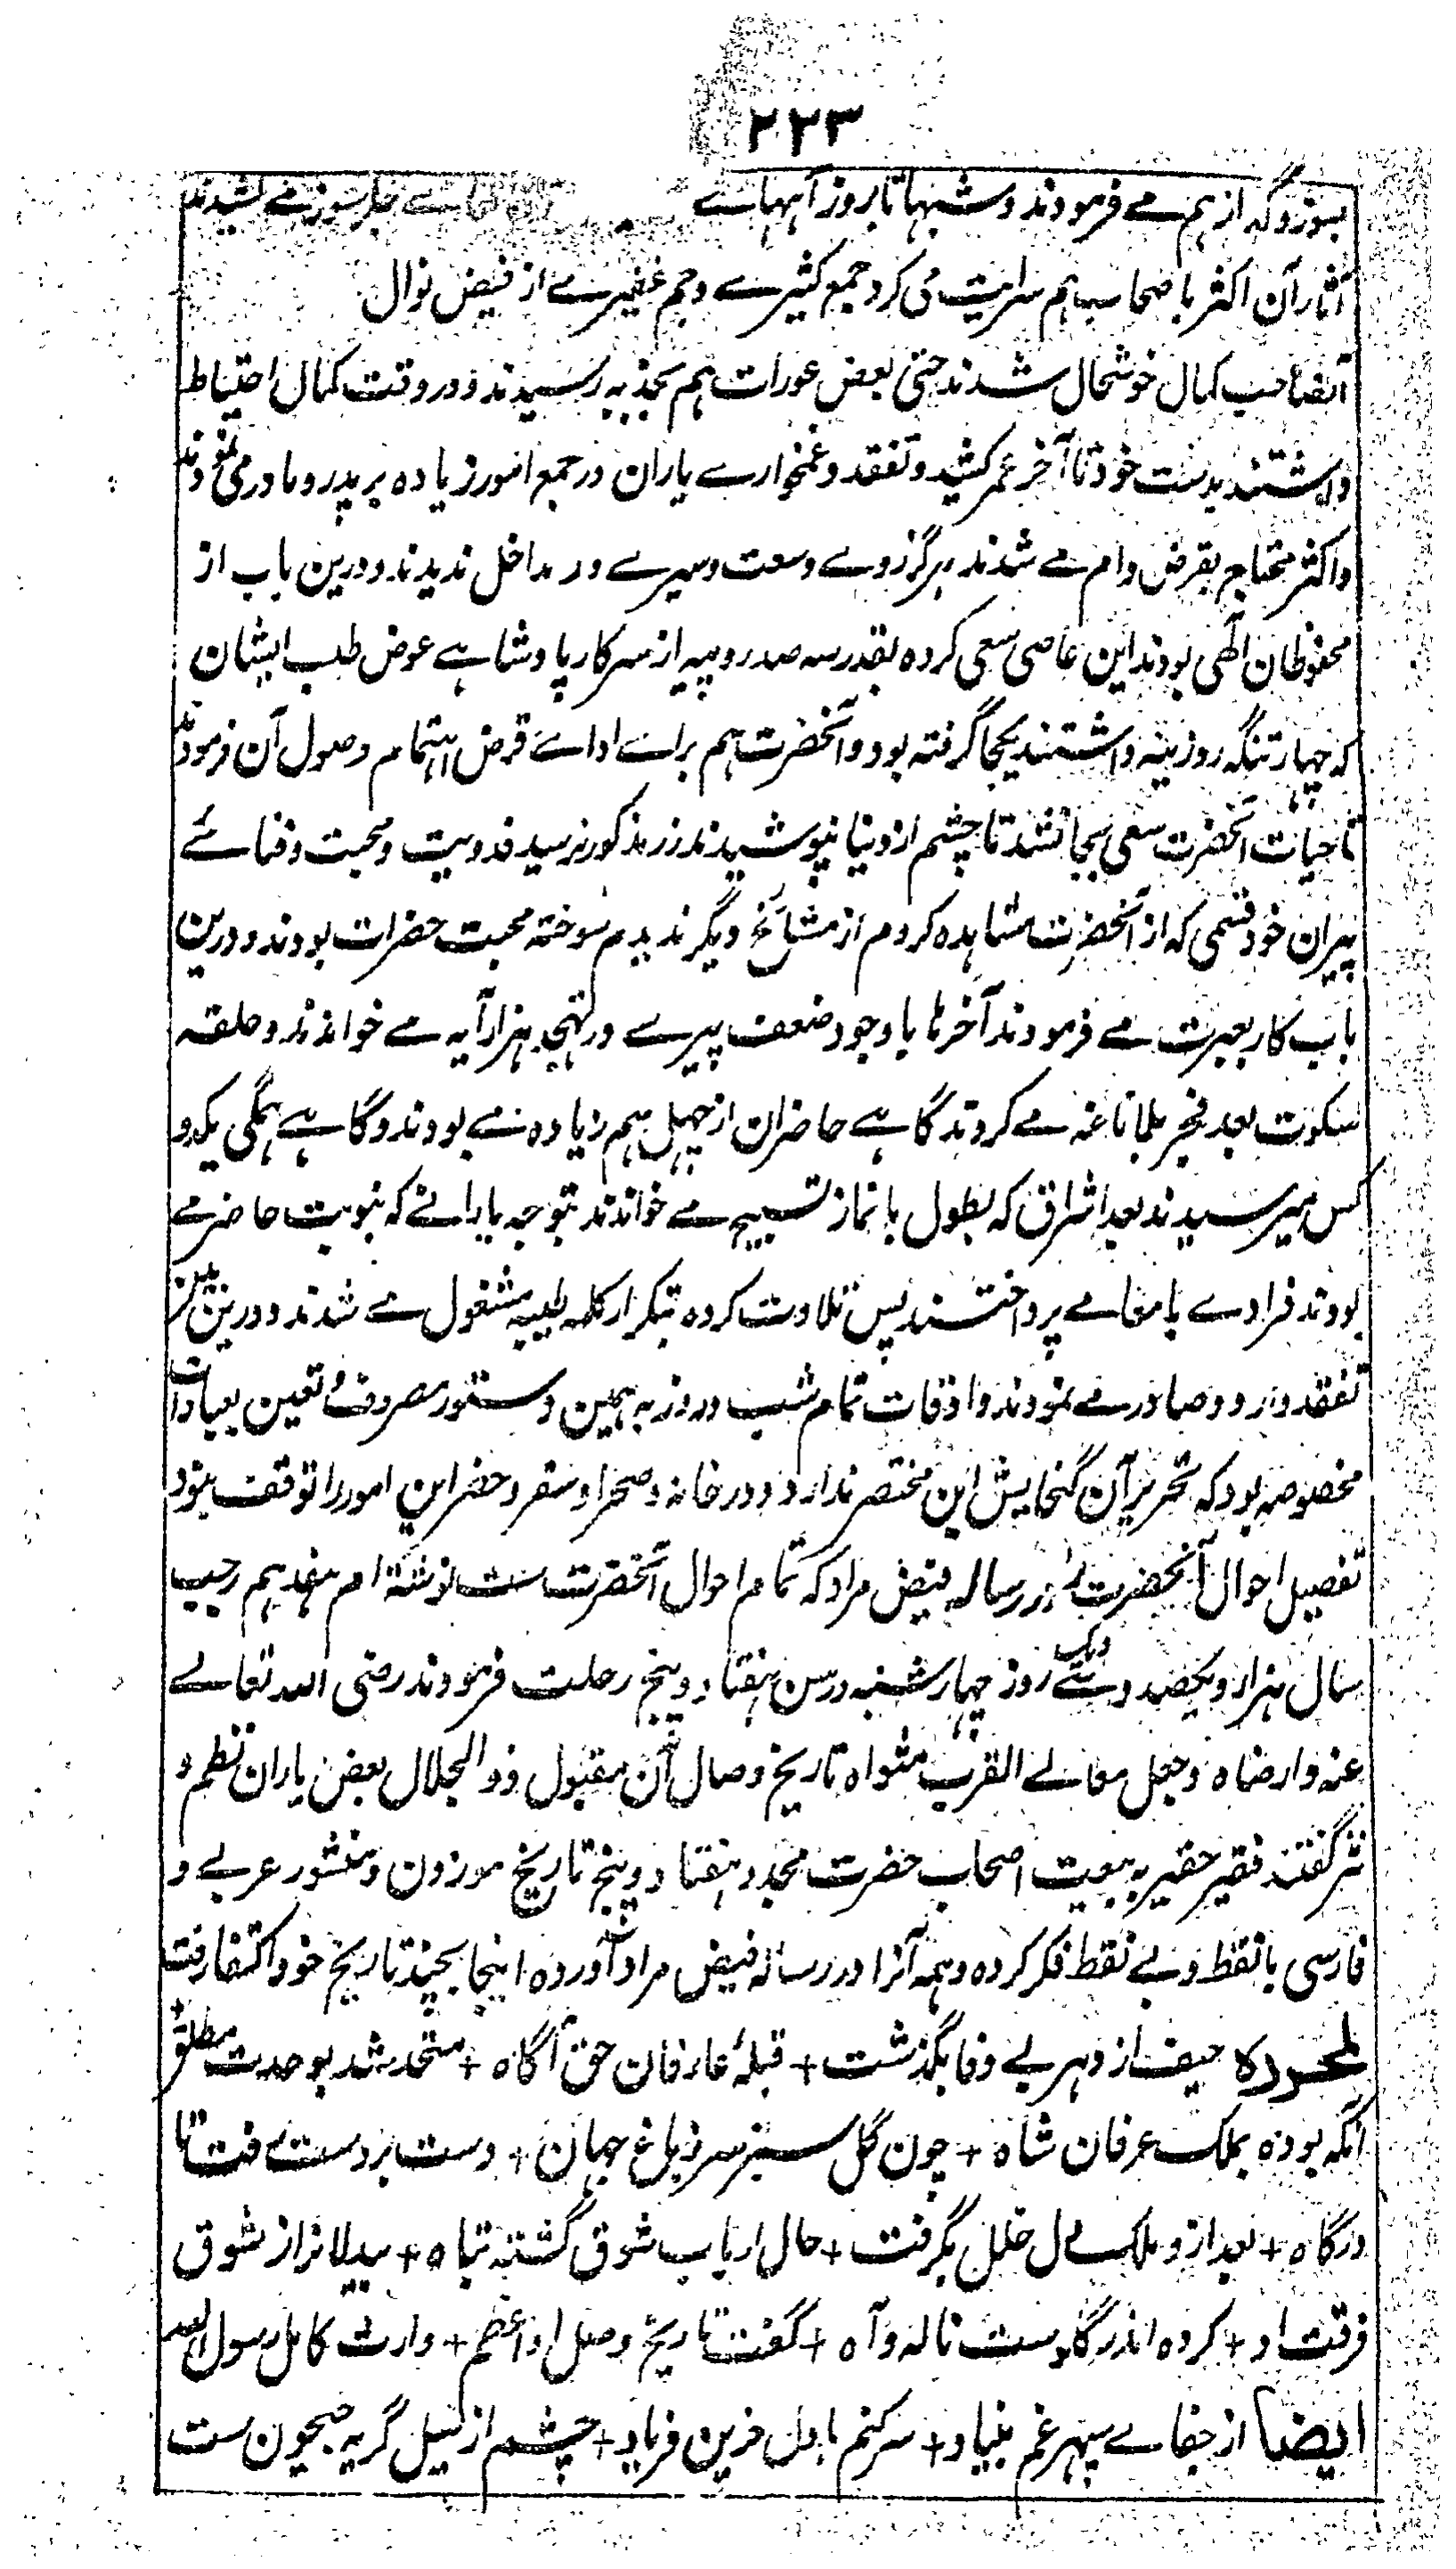 ۲۲۳
بسوز و گداز هم مے فرمودند و شبہا تا بروز آہہاے جگر سوز مے کشیدند
آثار آن اکثر باصحاب ہم سرایت می کرد جمع کثیرے و جم غفیرے از فیض نوال
آنصاحب کمال خوشحال شدند حتی بعض عورات ہم بجذبہ رسیدند و در وقت کمال احتیاط
داشتند بدست خود تا آخر عمر کشید و تفقد و غمخوارے یاران در جمع امور زیادہ بر پدر و مادر می نمودند
و اکثر محتاج بقرض وام مے شدند ہرگز روے وسعت و سیرے در مداخل ندیدند و درین باب از
محفوظان الٰہی بودند این عاصی سعی کردہ بقدر سہ صد روپیہ از سرکار پادشاہے عوض طلب ایشان
کہ چہار تنگہ روزینہ داشتند یکجا گرفتہ بود و آنحضرت ہم براے اداے قرض اہتمام وصول آن فرمودند
تا حیات آنحضرت سعی بجا نشد تا چشم از دنیا نپوشیدند زر مذکور نرسید فدویت و محبت و فنائے
پیران خود قسمی کہ از آنحضرت مشاہدہ کردم از مشائخ دیگر ندیدم سوختہ محبت حضرات بودند و درین
باب کار بعبرت مے فرمودند آخرہا باوجود ضعف پیرے در تہجد ہزار آیہ مے خواندند و حلقہ
سکوت بعد فجر بلا ناغہ مے کردند گاہے حاضران از چہل ہم زیادہ مے بودند و گاہے ہمگی یک دو
کس میرسیدند بعد اشراق کہ بطول با نماز تسبیح مے خواندند بتوجہ یارانے کہ بنوبت حاضر مے
بودند فرادے یا معاً مے پرداختند پس تلاوت کردہ بتکرار کلمہ طیبہ مشغول مے شدند و درین بین نیز
تفقد وارد و صادر مے نمودند و اوقات تمام شب و روز بہ ہمین دستور مصروف و تعین بعبادات
مخصوصہ بود کہ تحریر آن گنجایش این مختصر ندارد و در خانہ و صحرا و سفر و حضر این امور را توقف نبود
تفصیل احوال آنحضرت در رسالہ فیض مراد کہ تمام احوال آنحضرت ست نوشتہ ام ہفدہم رجب
سال ہزار و یکصد و سی و یک روز چہار شنبہ در سن ہفتاد و پنج رحلت فرمودند رضی اللہ تعالے
عنہ و ارضاہ و جعل معالے القرب مثواہ تاریخ وصال آن مقبول ذو الجلال بعض یاران نظم و
نثر گفتند فقیر حقیر بہ تبعیت اصحاب حضرت مجدد ہفتاد و پنج تاریخ موزون و منثور عربے و
فارسی با نقط و بے نقط فکر کردہ و ہمہ آنرا در رسالہ فیض مراد آوردہ اینجا بچند تاریخ خود اکتفا رفت
لمحررہ حیف از دہر بے وفا بگذشت + قبلۂ عارفان حق آگاہ + متحد شد بوحدت مطلق +
آنکہ بودہ بملک عرفان شاہ + چون گل سبز سر ز باغ جہان + دست بر دست رفت تا
درگاہ + بعد ازو ملک دل خلل بگرفت + حال ارباب شوق گشتہ تباہ + بیدلانرا از شوق
فرقت او + کردہ اندر گلوست نالہ و آہ + گفت تاریخ وصل او اعظم + وارث کامل رسول اللہ
ایضاً از جفاے سپہر غم بنیاد + سر کنم با دل حزین فریاد + چشم از سیل گریہ جیحون ست